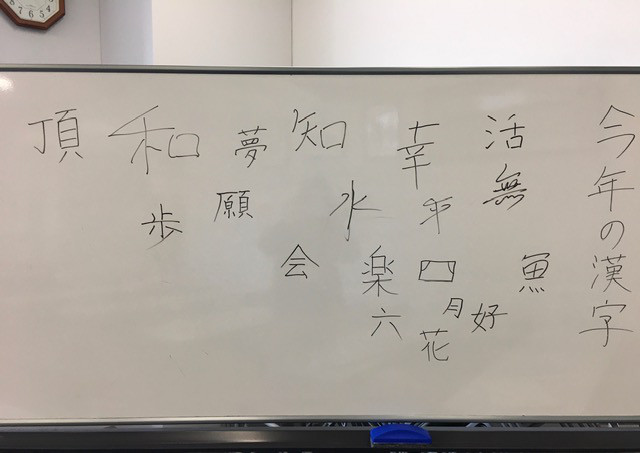 今年の漢字
活
無
魚
好
幸
平
四
月
花
知
水
楽
六
会
夢
願
和
歩
頂